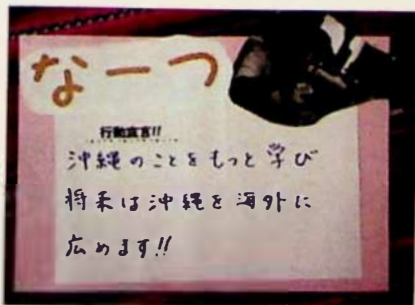 なーつ
行動宣言!!
沖縄のことをもっと学び
将来は沖縄を海外に
広めます!!